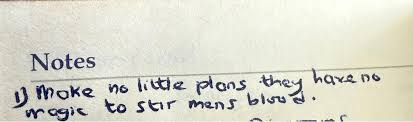 Notes
1) Make no little plans they have no
magic to stir mens blood.